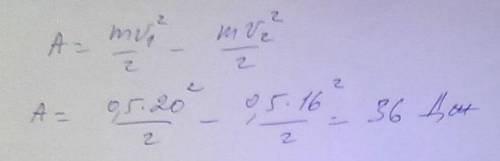 A = mv₁²/2 - mv₂²/2
A = 0,5·20²/2 - 0,5·16²/2 = 36 Дж